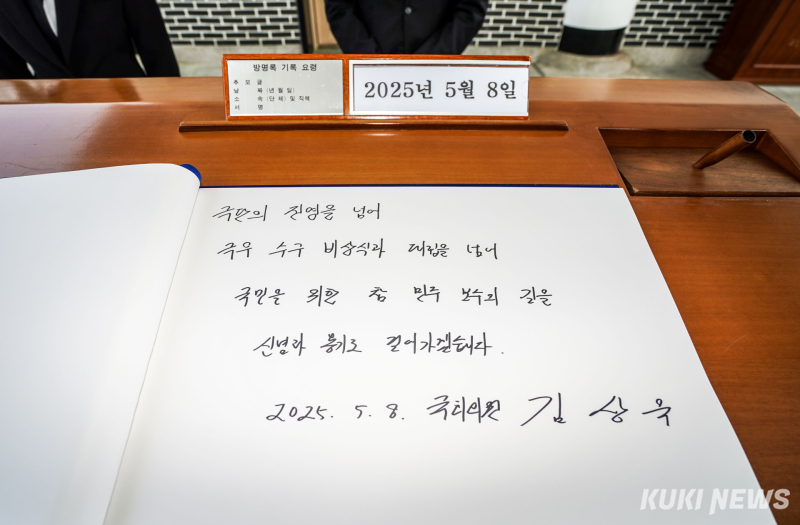 방명록 기록 요령
추 모 글
날 짜 (년 월 일)
소 속 (단 체) 및 직책
서 명
2025년 5월 8일
극단의 진영을 넘어
극우 수구 비상식과 대립을 넘어
국민을 위한 참 민주 보수의 길을
신념과 용기로 걸어가겠습니다.
2025. 5. 8. 국회의원 김상욱
KUKI NEWS